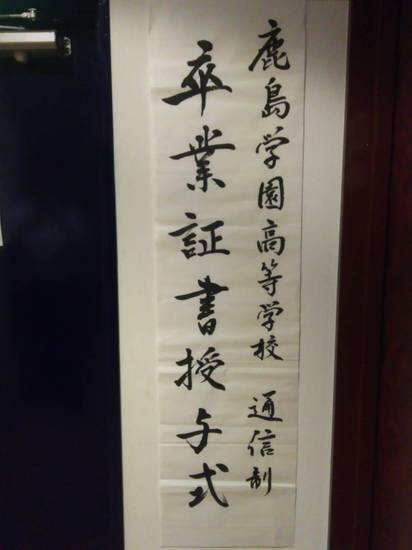 鹿島学園高等学校 通信制
卒業証書授与式